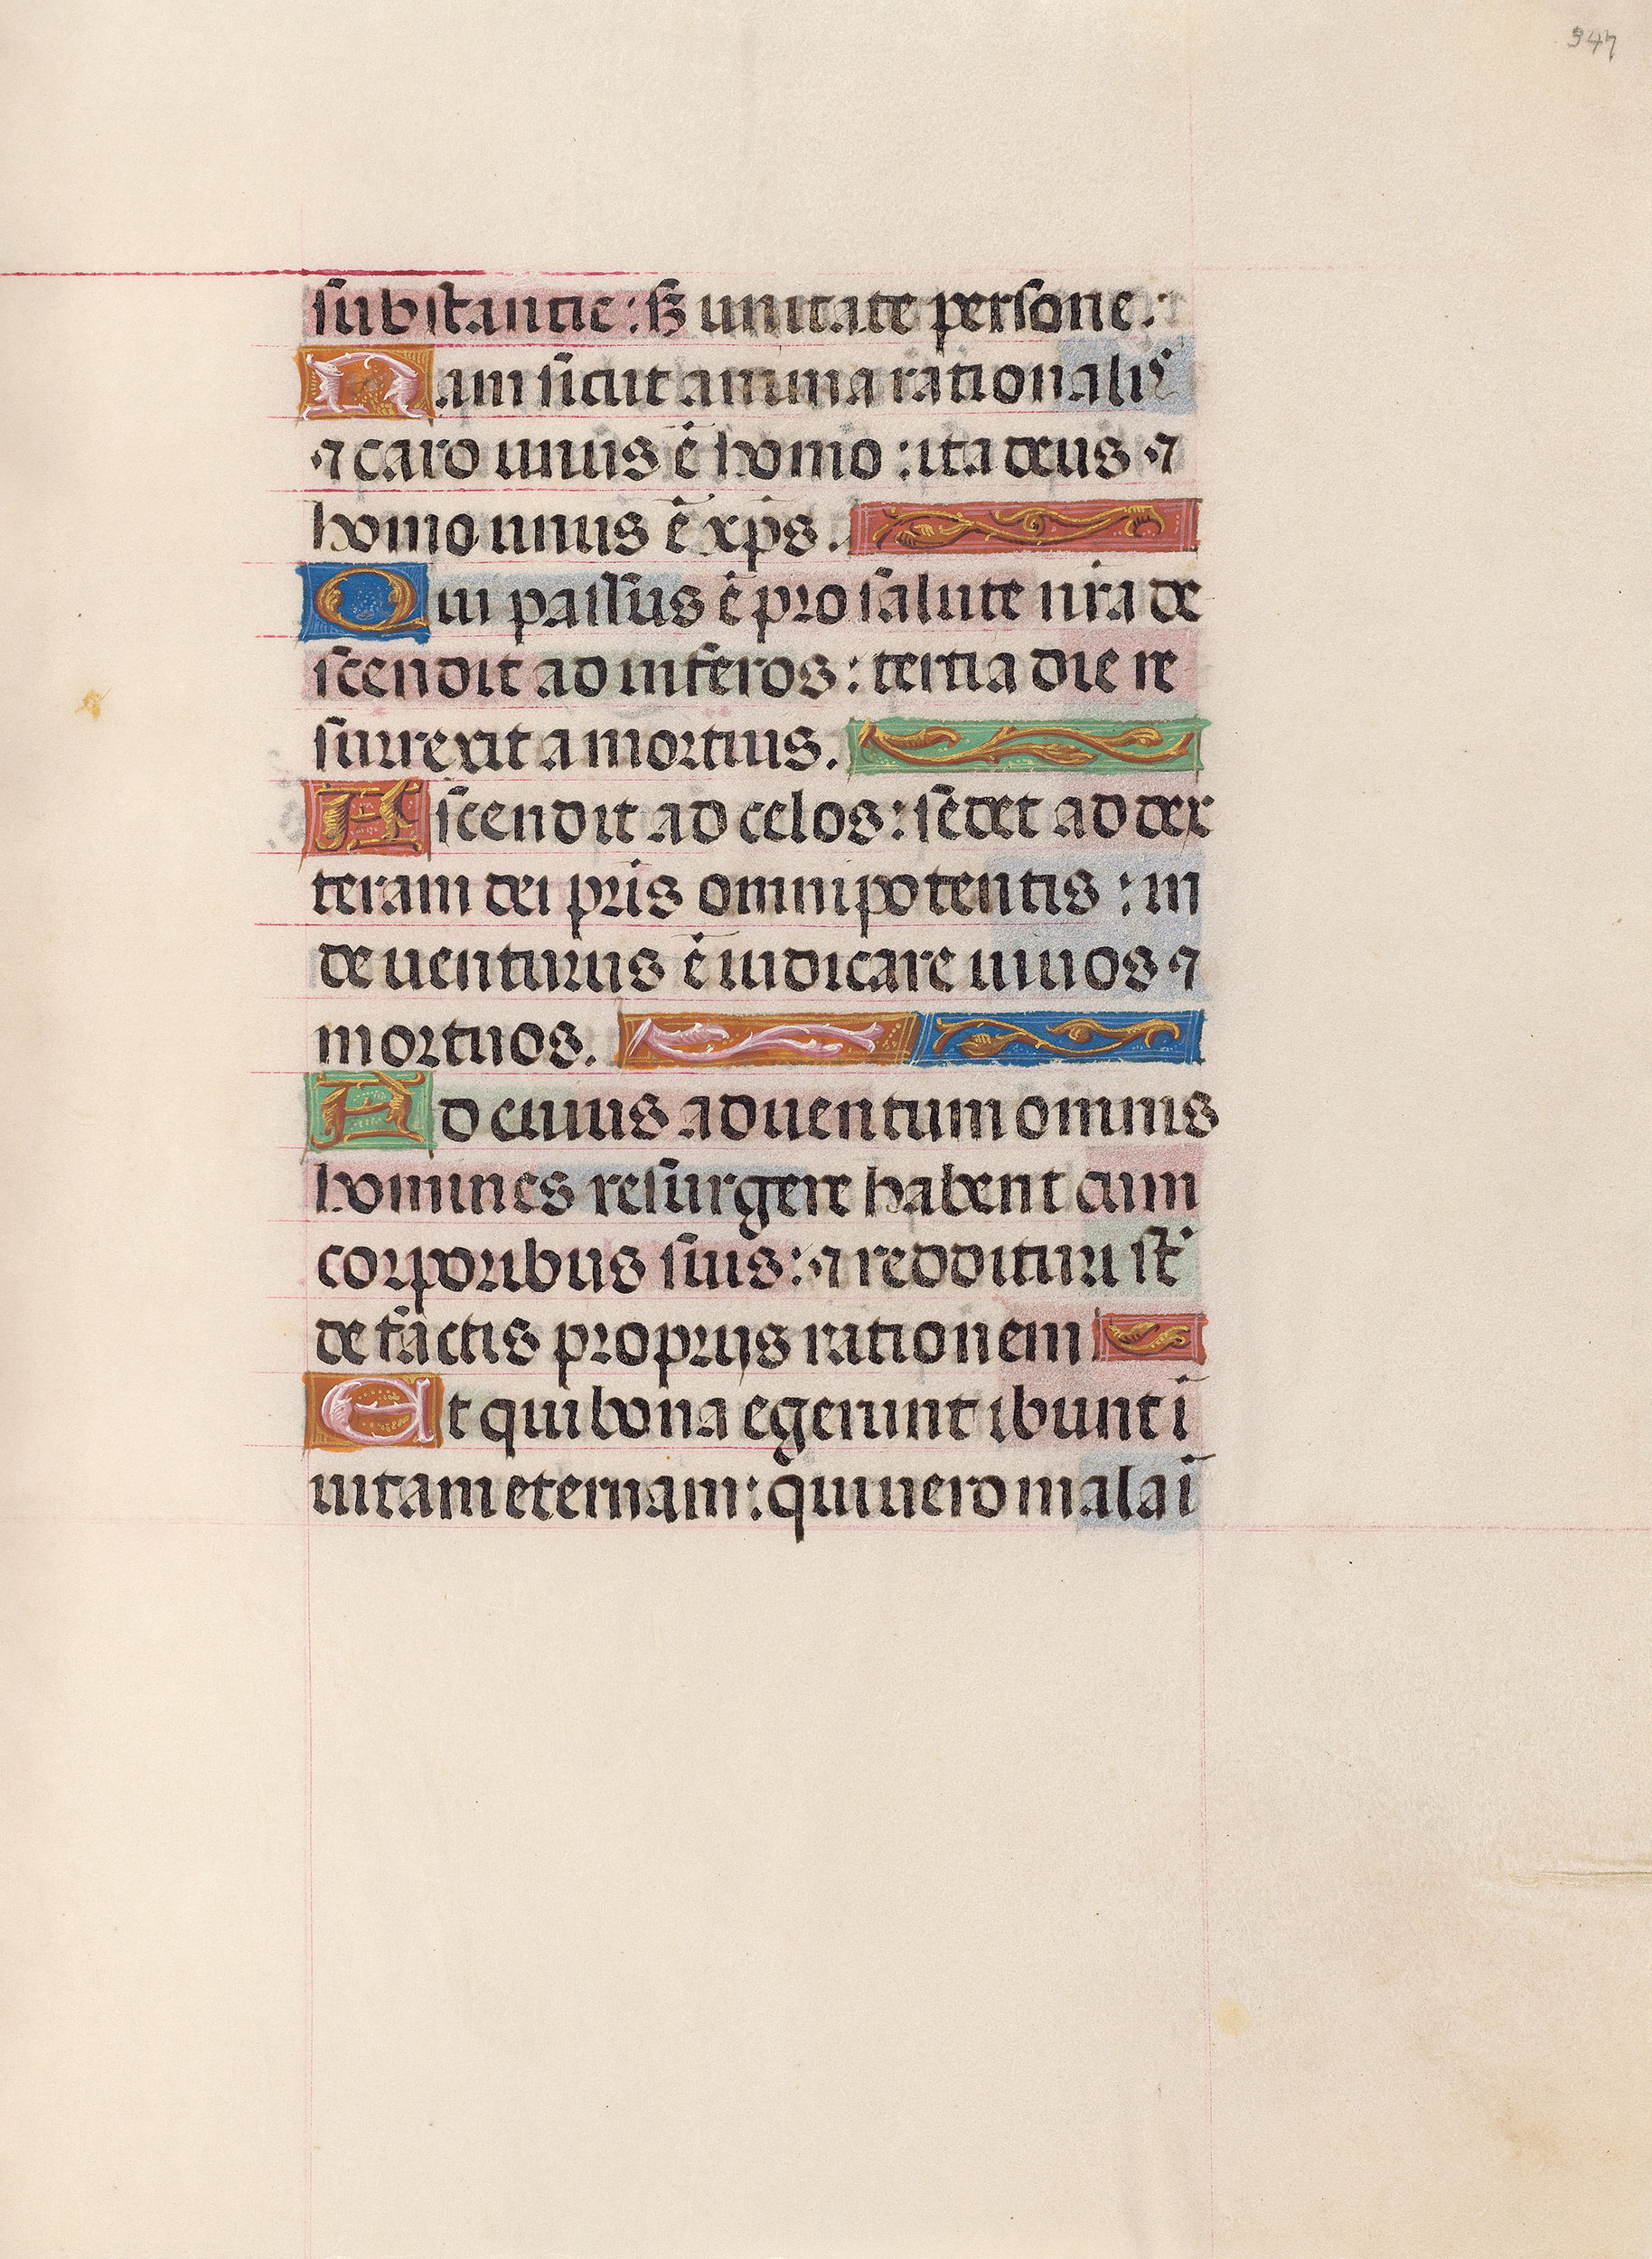 947
substantie: sꝫ unitate persone:
Nam sicut anima rationalis
⁊ caro unus ē homo: ita deus ⁊
homo unus ē xp̄s.
Qui passus ē pro salute nr̄a de
scendit ad inferos: tertia die re
surrexit a mortuis.
Ascendit ad celos: sedet ad dex
teram dei pr̄is omnipotentis: in
de uenturus ē iudicare uiuos ⁊
mortuos.
Ad cuius aduentum omnis
homines resurgere habent cum
corporibus suis: ⁊ reddituri st̄
de factis proprijs rationem
Et qui bona egerunt ibunt ī
uitam eternam: qui uero mala ī